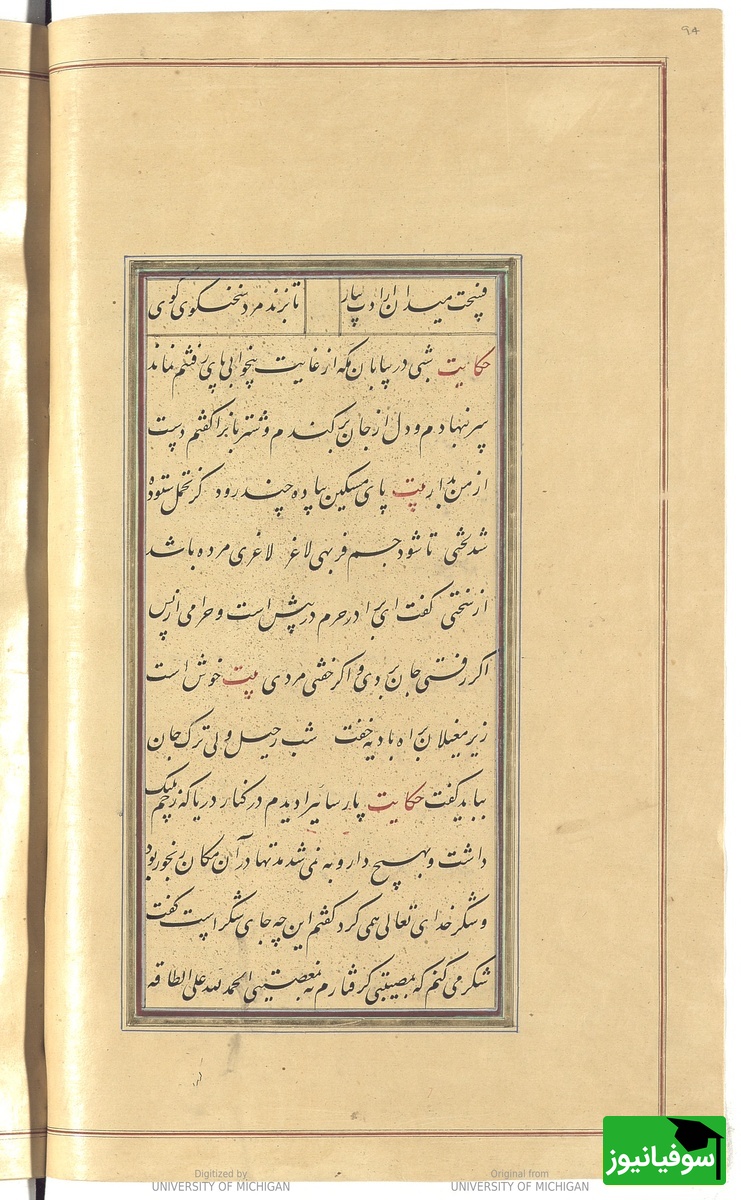 ۹۴
فسحت میدان ارادت بیار
تا بزند مرد سخنکوی کوی
حکایت شبی در بیابان مکه از غایت بیخوابی پای رفتنم نماند
سر نهادم و دل از جان بر کندم و شتربانرا کفتم دست
از من بدار بیت پای مسکین پیاده چند رود کز تحمل ستوده
شد بختی تا شود جسم فربهی لاغر لاغری مرده باشد
از سختی کفت ای برادر حرم در پیش است و حرامی از پس
اکر رفتی جان بردی و اکر خفتی مردی بیت خوش است
زیر مغیلان براه بادیه خفت شب رحیل ولی ترک جان
بباید کفت حکایت پارسائیرا دیدم در کنار دریا که زخم پلنک
داشت و بهیچ دارو به نمی شد مدتها در آن مکان رنجور بود
و شکر خدای تعالی همی کرد کفتم این چه جای شکر است کفت
شکر می کنم که بمصیبتی کرفتارم نه بمعصیتی الحمد لله علی الطاقه
سوفیانیوز
Digitized by
UNIVERSITY OF MICHIGAN
Original from
UNIVERSITY OF MICHIGAN